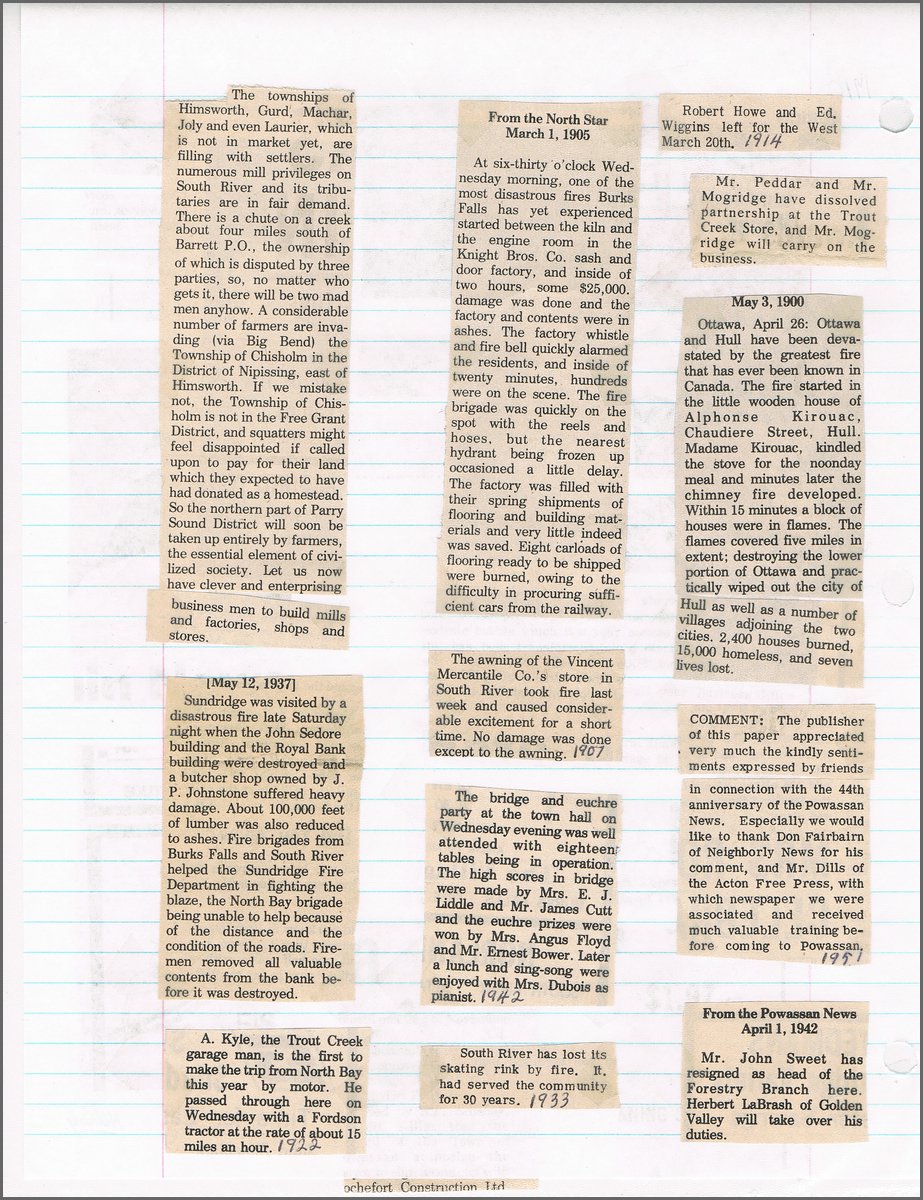 The townships of
Himsworth, Gurd, Machar,
Joly and even Laurier, which
is not in market yet, are
filling with settlers. The
numerous mill privileges on
South River and its tribu-
taries are in fair demand.
There is a chute on a creek
about four miles south of
Barrett P.O., the ownership
of which is disputed by three
parties, so, no matter who
gets it, there will be two mad
men anyhow. A considerable
number of farmers are inva-
ding (via Big Bend) the
Township of Chisholm in the
District of Nipissing, east of
Himsworth. If we mistake
not, the Township of Chis-
holm is not in the Free Grant
District, and squatters might
feel disappointed if called
upon to pay for their land
which they expected to have
had donated as a homestead.
So the northern part of Parry
Sound District will soon be
taken up entirely by farmers,
the essential element of civi-
lized society. Let us now
have clever and enterprising
business men to build mills
and factories, shops and
stores.
[May 12, 1937]
Sundridge was visited by a
disastrous fire late Saturday
night when the John Sedore
building and the Royal Bank
building were destroyed and
a butcher shop owned by J.
P. Johnstone suffered heavy
damage. About 100,000 feet
of lumber was also reduced
to ashes. Fire brigades from
Burks Falls and South River
helped the Sundridge Fire
Department in fighting the
blaze, the North Bay brigade
being unable to help because
of the distance and the
condition of the roads. Fire-
men removed all valuable
contents from the bank be-
fore it was destroyed.
A. Kyle, the Trout Creek
garage man, is the first to
make the trip from North Bay
this year by motor. He
passed through here on
Wednesday with a Fordson
tractor at the rate of about 15
miles an hour. 1922
From the North Star
March 1, 1905
At six-thirty o'clock Wed-
nesday morning, one of the
most disastrous fires Burks
Falls has yet experienced
started between the kiln and
the engine room in the
Knight Bros. Co. sash and
door factory, and inside of
two hours, some $25,000.
damage was done and the
factory and contents were in
ashes. The factory whistle
and fire bell quickly alarmed
the residents, and inside of
twenty minutes, hundreds
were on the scene. The fire
brigade was quickly on the
spot with the reels and
hoses, but the nearest
hydrant being frozen up
occasioned a little delay.
The factory was filled with
their spring shipments of
flooring and building mat-
erials and very little indeed
was saved. Eight carloads of
flooring ready to be shipped
were burned, owing to the
difficulty in procuring suffi-
cient cars from the railway.
The awning of the Vincent
Mercantile Co.'s store in
South River took fire last
week and caused consider-
able excitement for a short
time. No damage was done
except to the awning. 1907
The bridge and euchre
party at the town hall on
Wednesday evening was well
attended with eighteen
tables being in operation.
The high scores in bridge
were made by Mrs. E. J.
Liddle and Mr. James Cutt
and the euchre prizes were
won by Mrs. Angus Floyd
and Mr. Ernest Bower. Later
a lunch and sing-song were
enjoyed with Mrs. Dubois as
pianist. 1942
South River has lost its
skating rink by fire. It
had served the community
for 30 years. 1933
ochefort Construction Ltd
Robert Howe and Ed.
Wiggins left for the West
March 20th. 1914
Mr. Peddar and Mr.
Mogridge have dissolved
partnership at the Trout
Creek Store, and Mr. Mog-
ridge will carry on the
business.
May 3, 1900
Ottawa, April 26: Ottawa
and Hull have been deva-
stated by the greatest fire
that has ever been known in
Canada. The fire started in
the little wooden house of
Alphonse Kirouac,
Chaudiere Street, Hull.
Madame Kirouac, kindled
the stove for the noonday
meal and minutes later the
chimney fire developed.
Within 15 minutes a block of
houses were in flames. The
flames covered five miles in
extent; destroying the lower
portion of Ottawa and prac-
tically wiped out the city of
Hull as well as a number of
villages adjoining the two
cities. 2,400 houses burned,
15,000 homeless, and seven
lives lost.
COMMENT: The publisher
of this paper appreciated
very much the kindly senti-
ments expressed by friends
in connection with the 44th
anniversary of the Powassan
News. Especially we would
like to thank Don Fairbairn
of Neighborly News for his
comment, and Mr. Dills of
the Acton Free Press, with
which newspaper we were
associated and received
much valuable training be-
fore coming to Powassan.
1951
From the Powassan News
April 1, 1942
Mr. John Sweet has
resigned as head of the
Forestry Branch here.
Herbert LaBrash of Golden
Valley will take over his
duties.